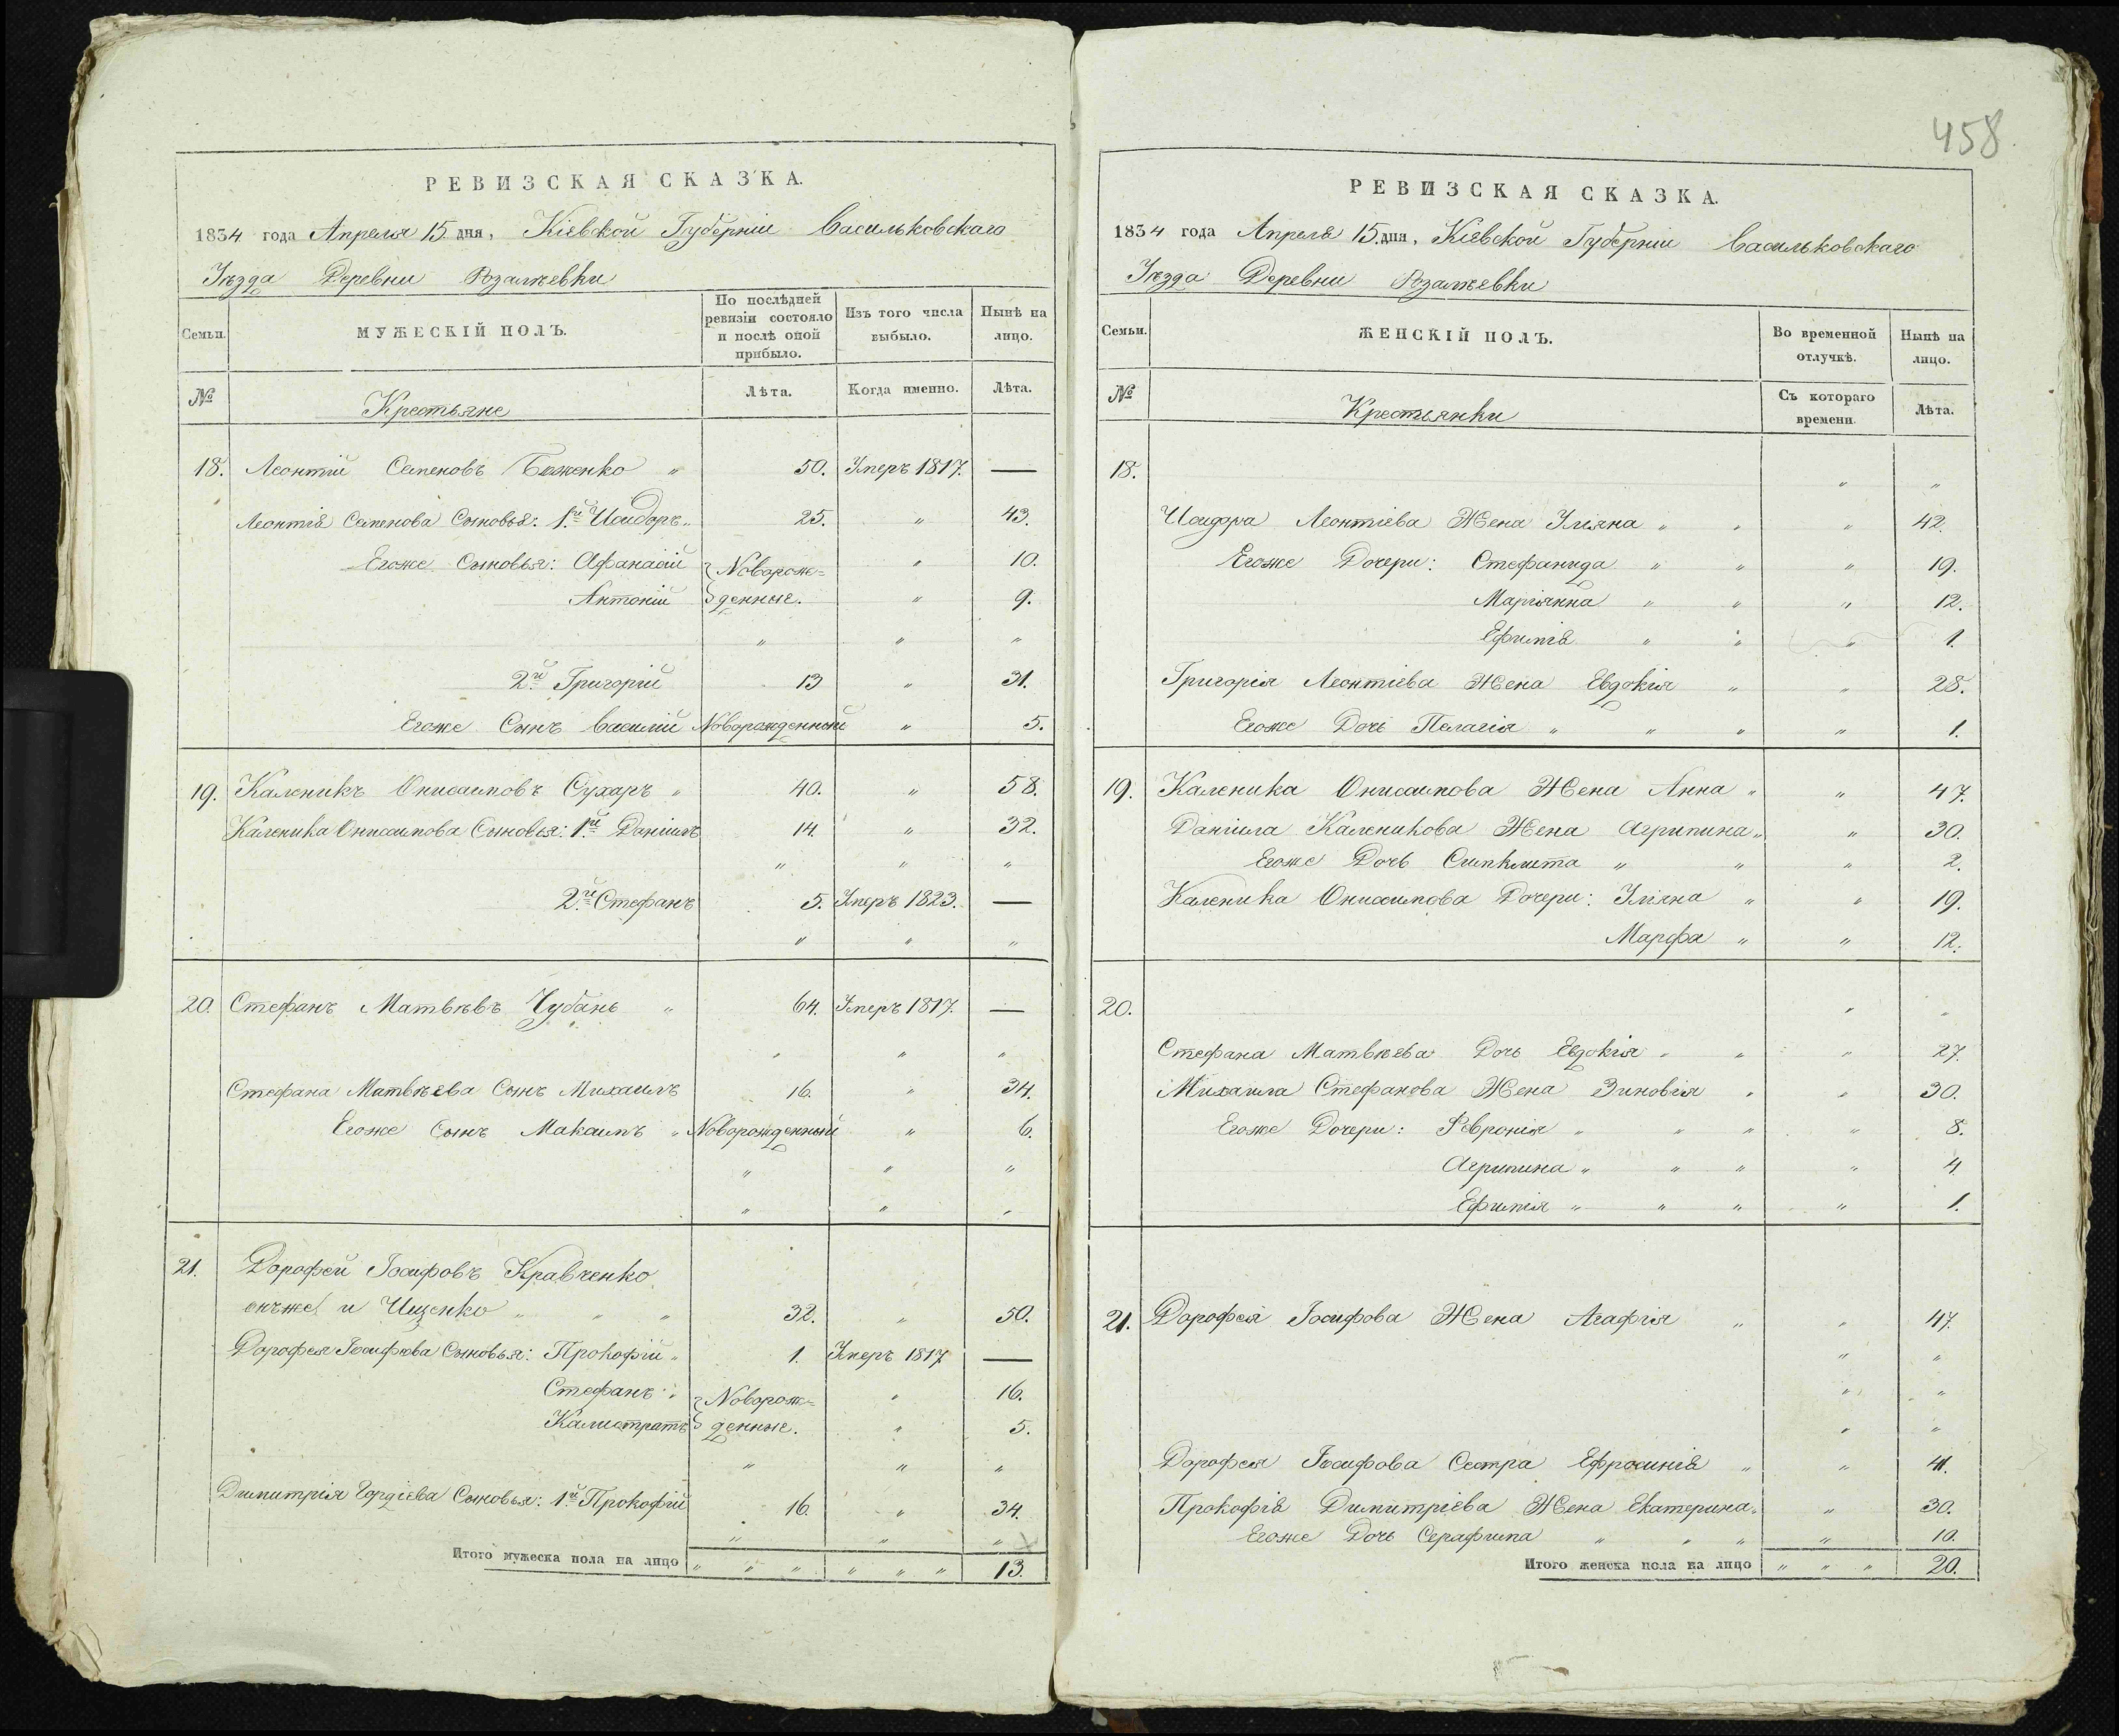 458
РЕВИЗСКАЯ СКАЗКА.
1834 года Апреля 15. дня, Кіевской Губерніи Васильковскаго
Уѣзда Деревни Розалѣевки
Семьи. МУЖЕСКІЙ ПОЛЪ. По послѣдней ревизіи состояло и послѣ оной прибыло. Изъ того числа выбыло. Нынѣ на лицо.
№ Крестьяне Лѣта. Когда именно. Лѣта.
18. Леонтій Семеновъ Баженко " 50. Умеръ 1817. —
Леонтія Семенова Сыновья: 1.й Исидоръ " 25. " 43.
Егоже Сыновья: Афанасій Новорож= " 10.
Антоній денные. " 9.
" " "
2.й Григорій 13 " 31.
Егоже Сынъ Василій Новорожденный " 5.
19. Каленикъ Онисимовъ Сухаръ " 40. " 58.
Каленика Онисимова Сыновья: 1.й Даніилъ 14. " 32.
" " "
2.й Стефанъ 5. Умеръ 1823. —
" " "
20. Стефанъ Матвѣевъ Чубань " 64. Умеръ 1817. —
" " "
Стефана Матвѣева Сынъ Михаилъ 16. " 34.
Егоже Сынъ Максимъ " Новорожденный " 6.
" " "
" " "
21. Дорофей Іосифовъ Кравченко
онъже и Ищенко " " " 32. " 50.
Дорофея Іосифова Сыновья: Прокофій " 1. Умеръ 1817 —
Стефанъ " Новорож= " 16.
Калистратъ денные. " 5.
" " "
Димитрія Гордіева Сыновья: 1.й Прокофій 16. " 34.
" " "
Итого мужеска пола на лицо " " " " " " 13.
РЕВИЗСКАЯ СКАЗКА.
1834 года Апреля 15. дня, Кіевской Губерніи Васильковскаго
Уѣзда Деревни Розалѣевки
Семьи. ЖЕНСКІЙ ПОЛЪ. Во временной отлучкѣ. Нынѣ на лицо.
№ Крестьянки Съ котораго времени. Лѣта.
18. " "
Исидора Леонтіева Жена Уліяна " " " 42.
Егоже Дочери: Стефанида " " " 19.
Маріянна " " " 12.
Ефимія " " " 1.
Григорія Леонтіева Жена Евдокія " " 28.
Егоже Дочь Пелагія " " " " 1.
19. Каленика Онисимова Жена Анна " " 47.
Даніила Каленикова Жена Агрипина " " 30.
Егоже Дочь Синклита " " " 2.
Каленика Онисимова Дочери: Уліяна " " 19.
Марфа " " 12.
20. " "
Стефана Матвѣева Дочь Евдокія " " " 27.
Михаила Стефанова Жена Зиновія " " 30.
Егоже Дочери: Февронія " " " " 8.
Агрипина " " " " 4.
Ефимія " " " " 1.
21. Дорофея Іосифова Жена Агафія " " 47.
" "
" "
" "
Дорофея Іосифова Сестра Ефросинія " " 41.
Прокофія Димитріева Жена Екатерина " " 30.
Егоже Дочь Серафима " " " " 10.
Итого женска пола на лицо " " " 20.